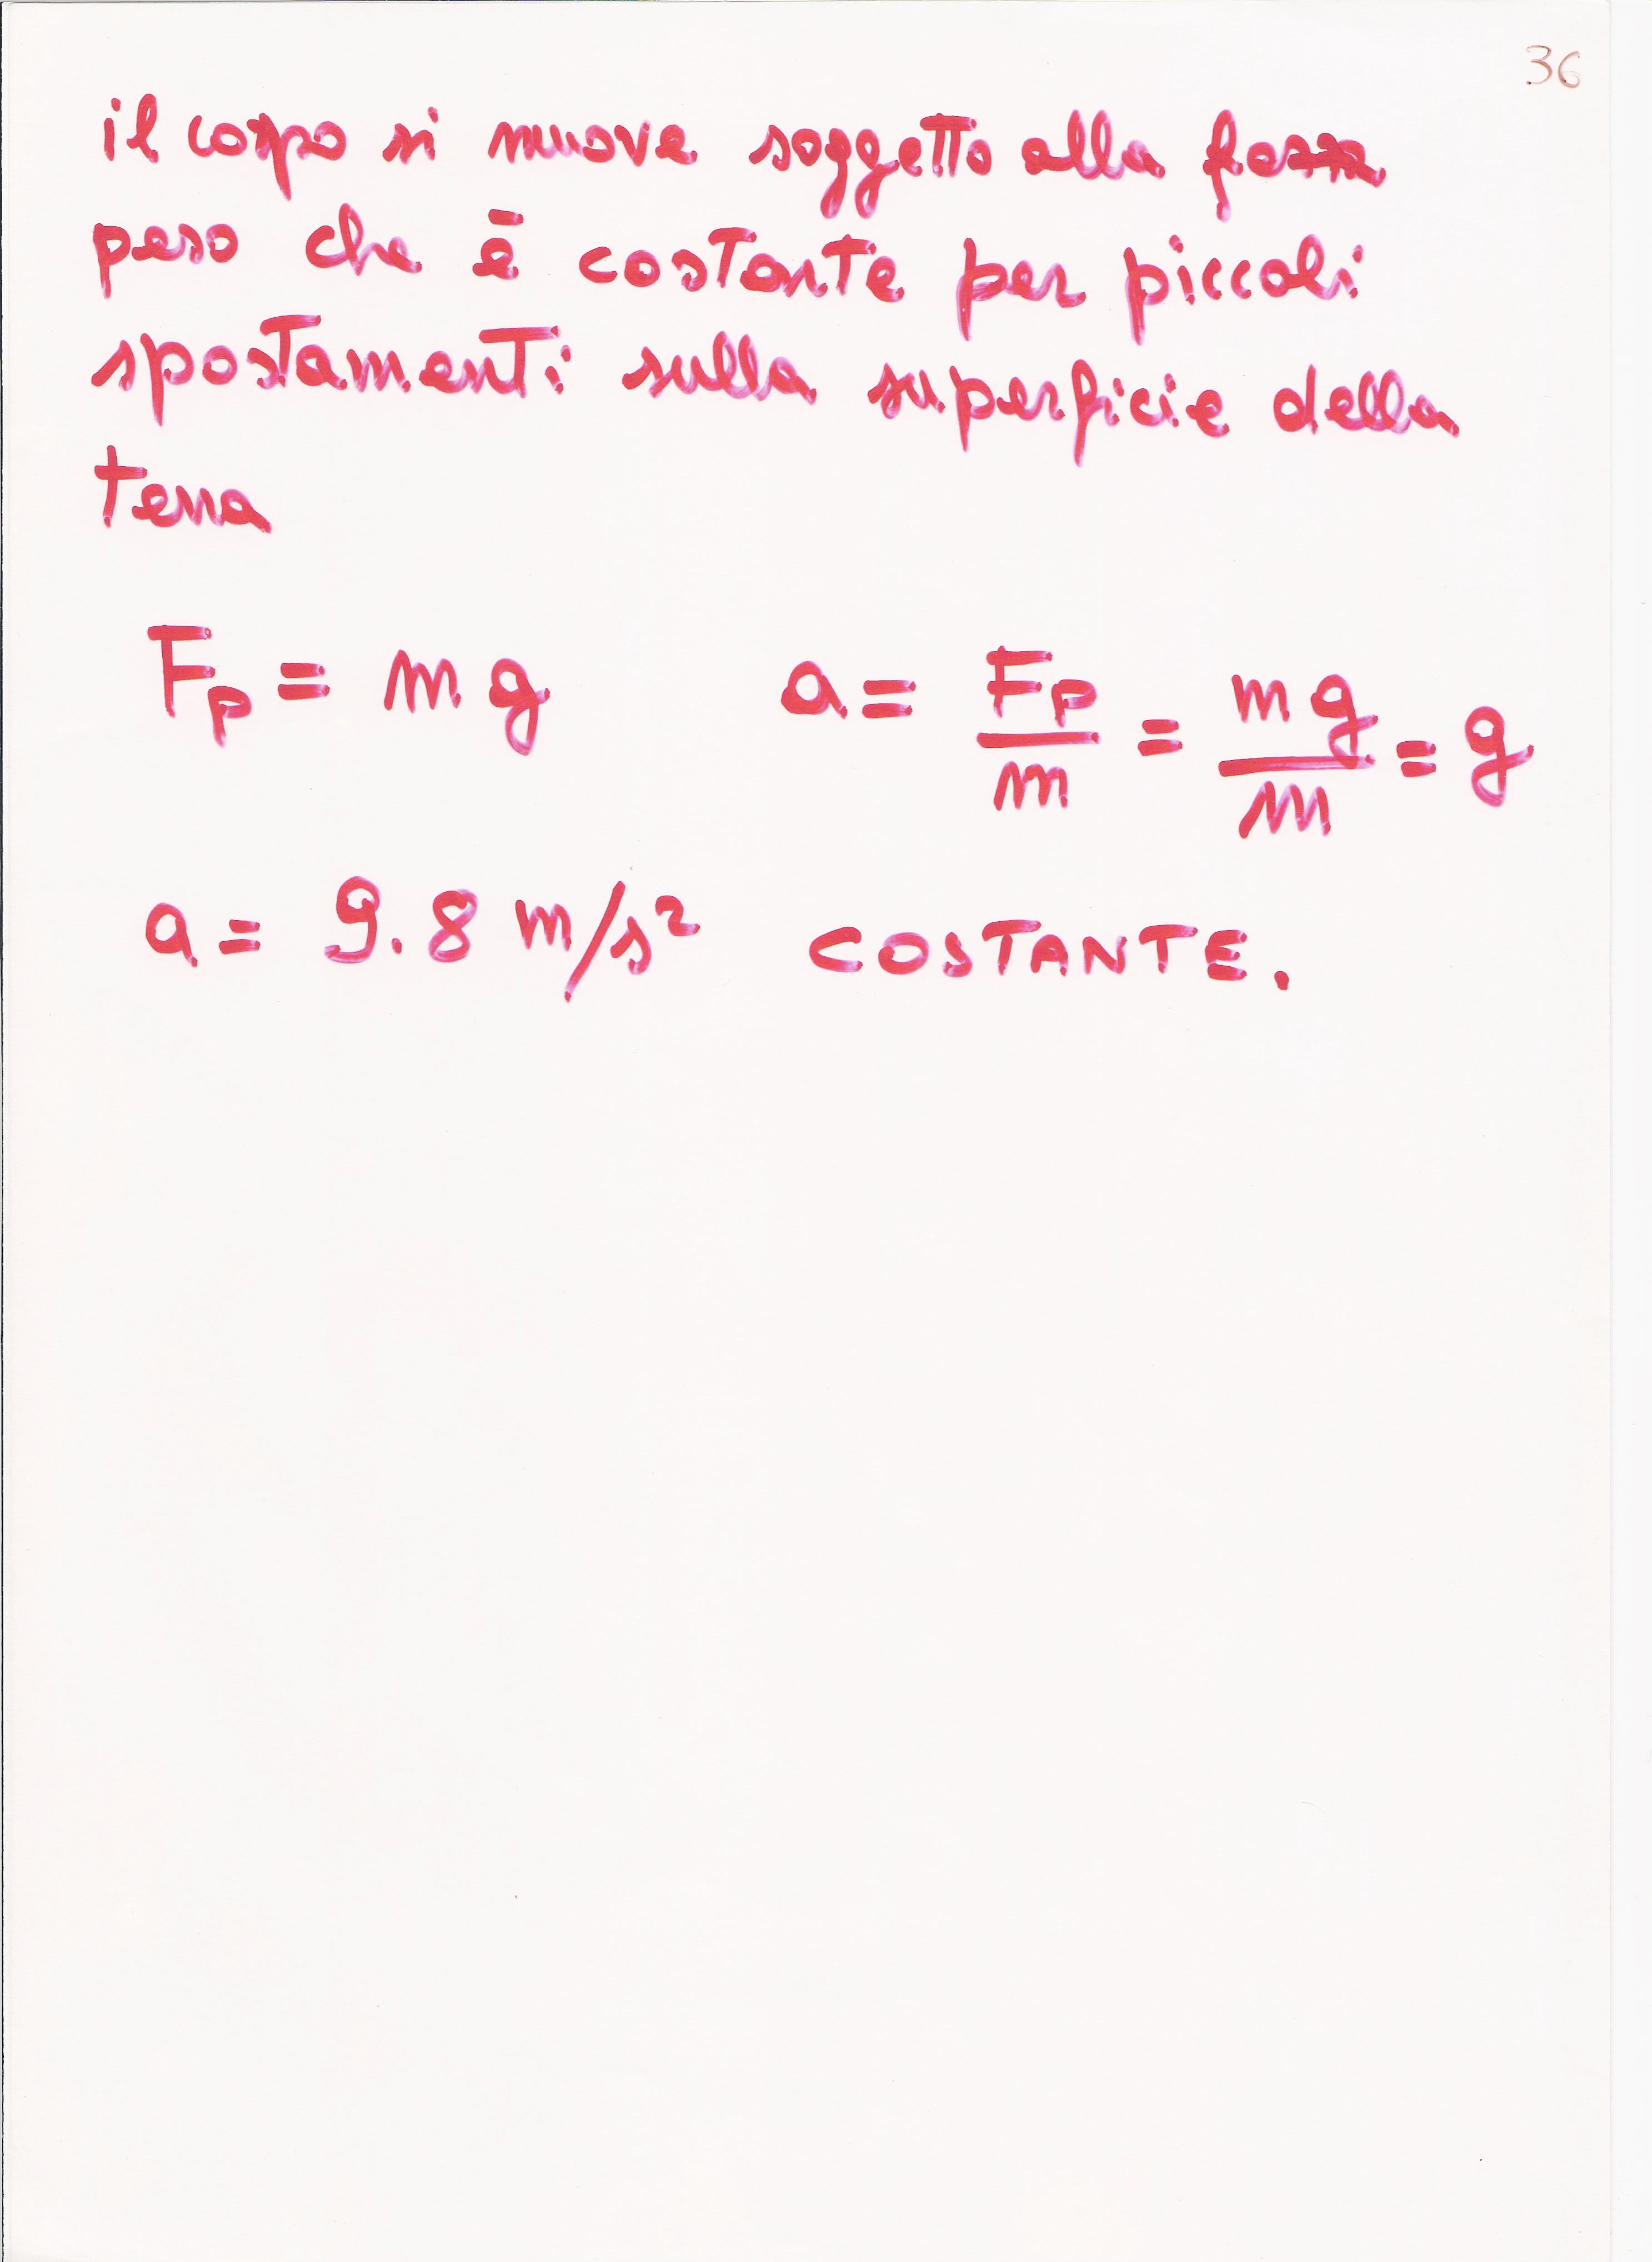 36
il corpo si muove soggetto alla forza
peso che è costante per piccoli
spostamenti sulla superficie della
terra
Fp = mg a = Fp/m = mg/m = g
a = 9.8 m/s² COSTANTE.